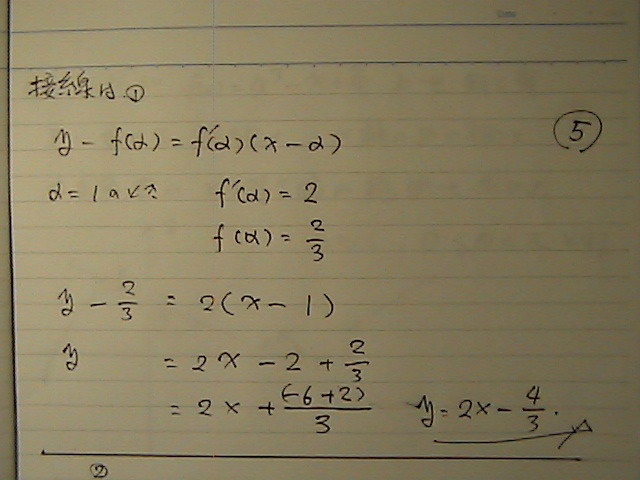 接線は ①
y - f(α) = f'(α)(x - α)
⑤
α = 1 のとき f'(α) = 2
f(α) = 2/3
y - 2/3 = 2(x - 1)
y = 2x - 2 + 2/3
= 2x + (-6+2)/3 y = 2x - 4/3.
②